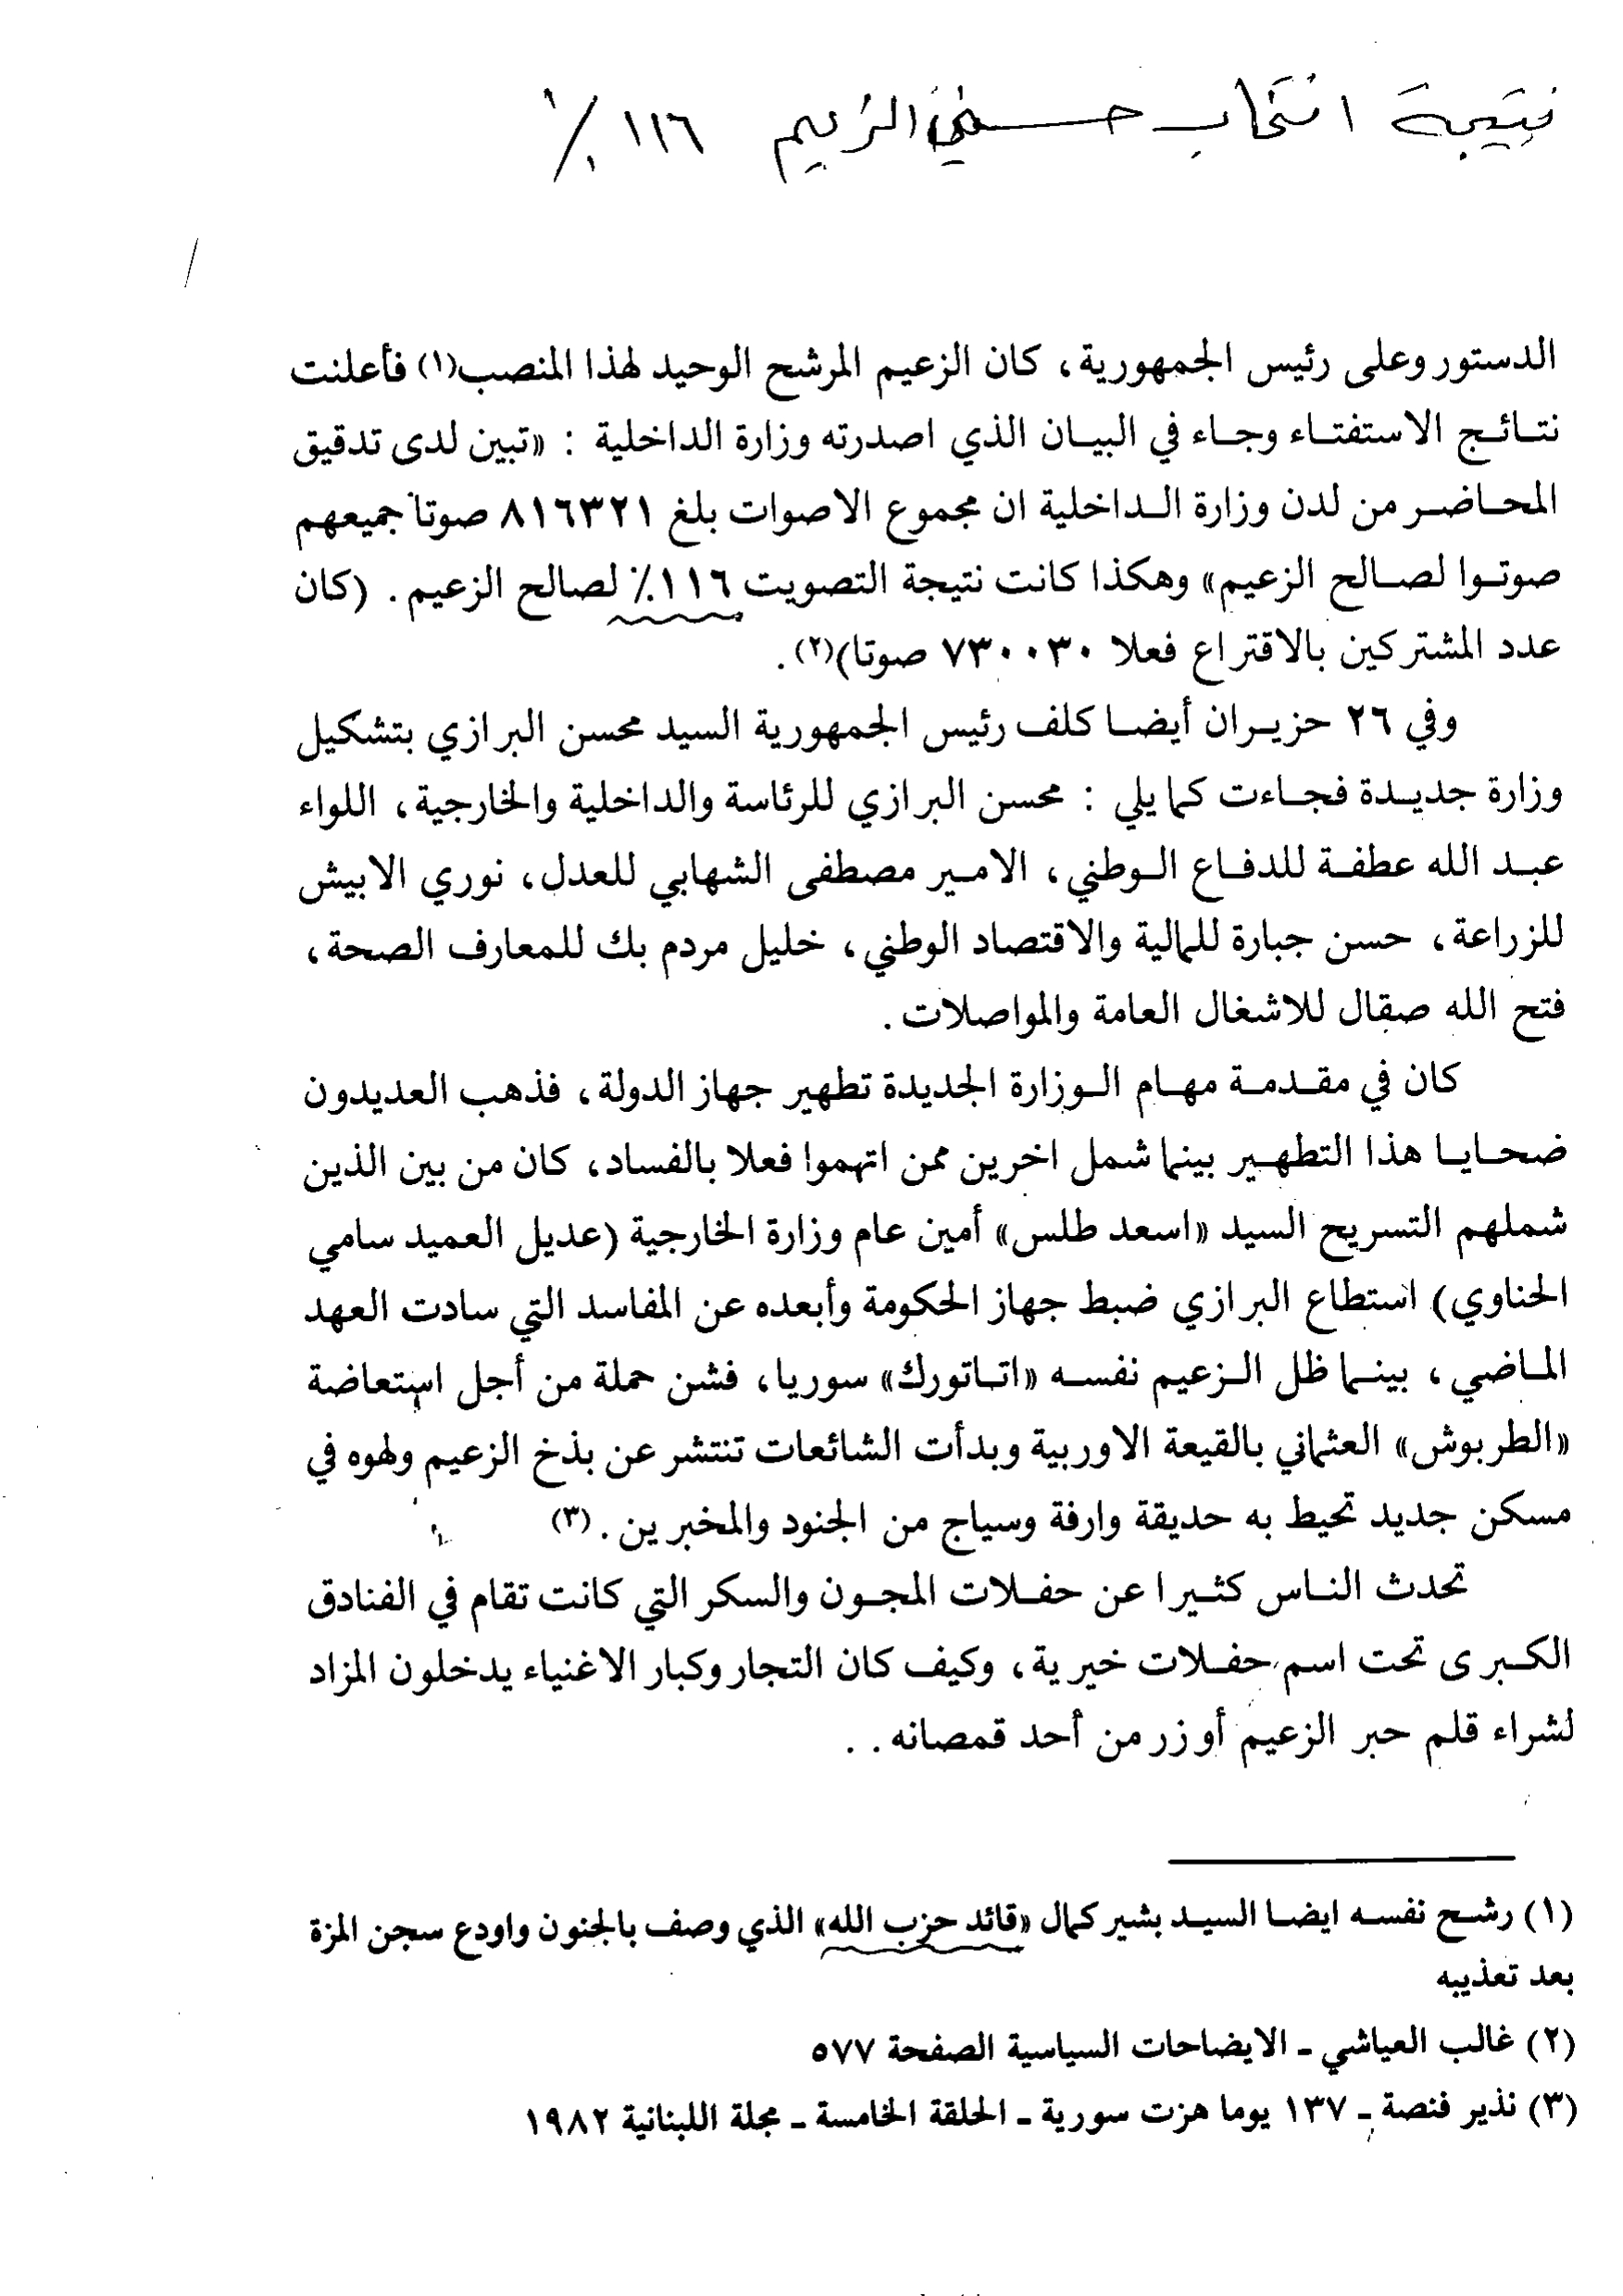 نتيجة انتخاب حسني الزعيم ١١٦ ٪
الدستور وعلى رئيس الجمهورية، كان الزعيم المرشح الوحيد لهذا المنصب(١) فأعلنت
نتائج الاستفتاء وجاء في البيان الذي اصدرته وزارة الداخلية : «تبين لدى تدقيق
المحاضر من لدن وزارة الداخلية ان مجموع الاصوات بلغ ٨١٦٣٢١ صوتا جميعهم
صوتوا لصالح الزعيم» وهكذا كانت نتيجة التصويت ١١٦٪ لصالح الزعيم. (كان
عدد المشتركين بالاقتراع فعلا ٧٣٠٠٣٠ صوتا)(٢).
وفي ٢٦ حزيران أيضا كلف رئيس الجمهورية السيد محسن البرازي بتشكيل
وزارة جديدة فجاءت كما يلي : محسن البرازي للرئاسة والداخلية والخارجية، اللواء
عبد الله عطفة للدفاع الوطني، الامير مصطفى الشهابي للعدل، نوري الابيش
للزراعة، حسن جبارة للمالية والاقتصاد الوطني، خليل مردم بك للمعارف الصحة،
فتح الله صقال للاشغال العامة والمواصلات.
كان في مقدمة مهام الوزارة الجديدة تطهير جهاز الدولة، فذهب العديدون
ضحايا هذا التطهير بينما شمل اخرين ممن اتهموا فعلا بالفساد، كان من بين الذين
شملهم التسريح السيد «اسعد طلس» أمين عام وزارة الخارجية (عديل العميد سامي
الحناوي) استطاع البرازي ضبط جهاز الحكومة وأبعده عن المفاسد التي سادت العهد
الماضي، بينما ظل الزعيم نفسه «اتاتورك» سوريا، فشن حملة من أجل استعاضة
«الطربوش» العثماني بالقيعة الاوربية وبدأت الشائعات تنتشر عن بذخ الزعيم ولهوه في
مسكن جديد تحيط به حديقة وارفة وسياج من الجنود والمخبرين. (٣)
تحدث الناس كثيرا عن حفلات المجون والسكر التي كانت تقام في الفنادق
الكبرى تحت اسم حفلات خيرية، وكيف كان التجار وكبار الاغنياء يدخلون المزاد
لشراء قلم حبر الزعيم أو زر من أحد قمصانه. .
(١) رشح نفسه ايضا السيد بشير كمال «قائد حزب الله» الذي وصف بالجنون واودع سجن المزة
بعد تعذيبه
(٢) غالب العياشي - الايضاحات السياسية الصفحة ٥٧٧
(٣) نذير فنصة - ١٣٧ يوما هزت سورية - الحلقة الخامسة - مجلة اللبنانية ١٩٨٢